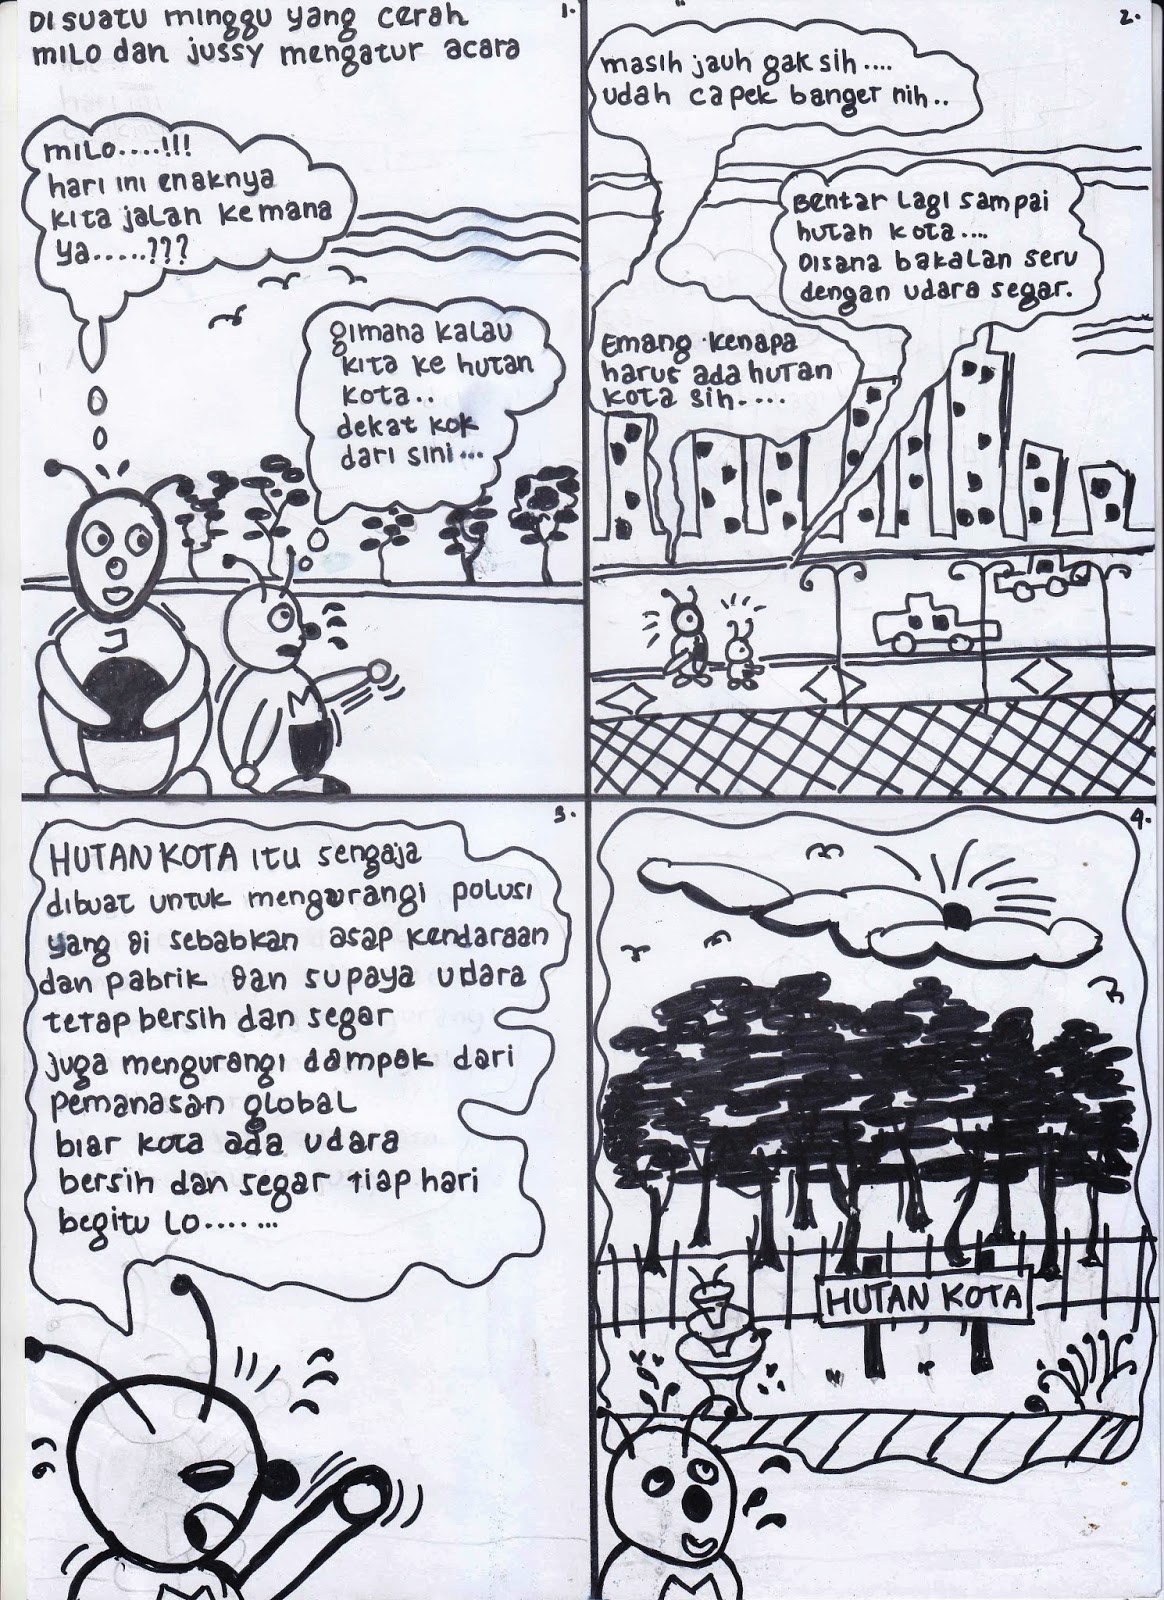 Di suatu minggu yang cerah
milo dan jussy mengatur acara
1.
milo....!!!
hari ini enaknya
kita jalan kemana
ya.....???
gimana kalau
kita ke hutan
kota..
dekat kok
dari sini...
J
M
2.
masih jauh gak sih....
udah capek banget nih..
Bentar lagi sampai
hutan kota....
Disana bakalan seru
dengan udara segar.
Emang kenapa
harus ada hutan
kota sih.....
3.
HUTAN KOTA itu sengaja
dibuat untuk mengurangi polusi
yang di sebabkan asap kendaraan
dan pabrik dan supaya udara
tetap bersih dan segar
juga mengurangi dampak dari
pemanasan global
biar kota ada udara
bersih dan segar tiap hari
begitu lo.... ...
M
4.
HUTAN KOTA
M